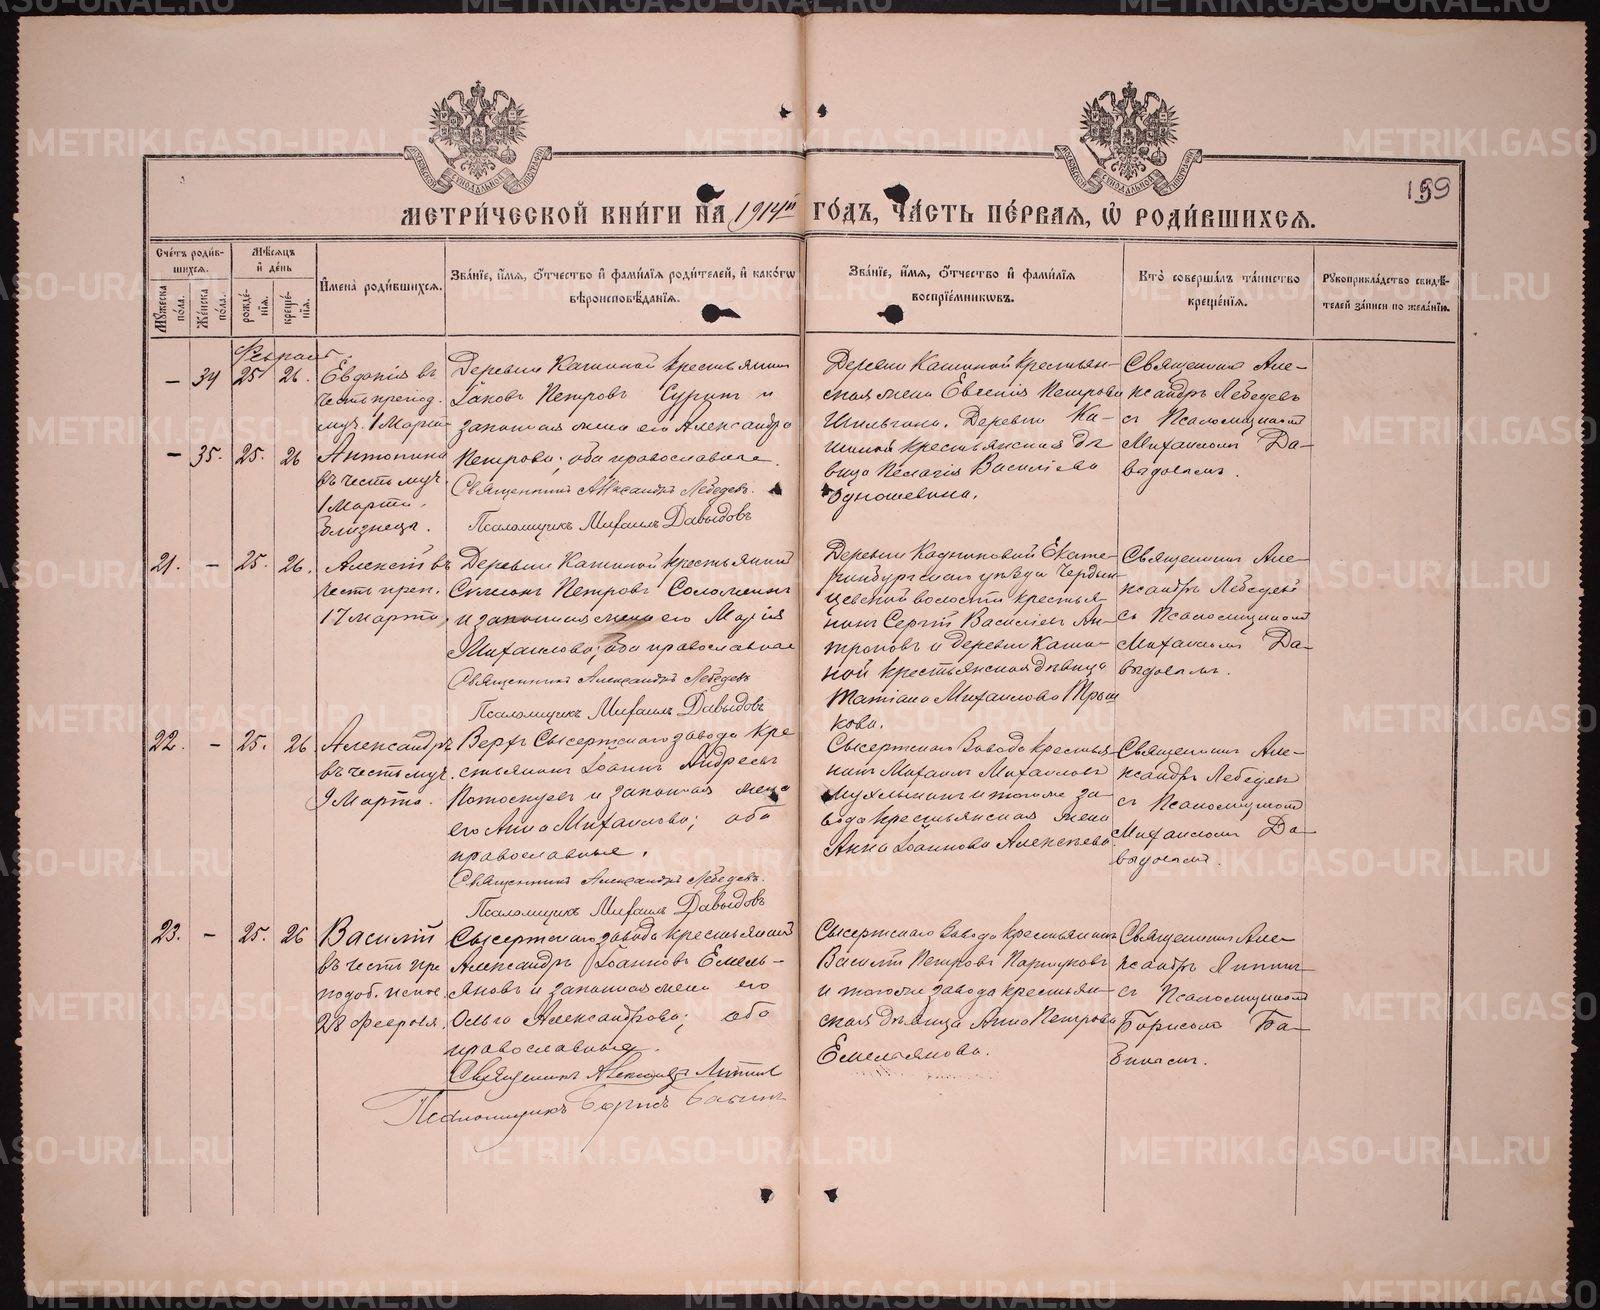 159
МЕТРИ́ЧЕСКОЙ КНИ́ГИ НА 1914й ГО́ДЪ, ЧА́СТЬ ПЕ́РВАЯ, Ѡ҆ РОДИ́ВШИХСЯ.
Сче́тъ роди́в-
шихся.
Му́жеска по́ла.
Же́нска по́ла.
Мѣ́сяцъ
и҆ де́нь
рожде́-
нїя.
креще́-
нїя.
И҆мена̀ роди́вшихся.
Зва́нїе, и҆́мя, ѻ҆́тчество и҆ фами́лїя роди́телей, и҆ како́гѡ
вѣроисповѣ́данїя.
Зва́нїе, и҆́мя, ѻ҆́тчество и҆ фами́лїя
воспрїе́мниковъ.
Кто̀ соверша́лъ та́инство
креще́нїя.
Рꙋкоприкла́дство свидѣ́-
телей за́писи по жела́нїю.
Февраль
– 34 25 26.
Евдокія въ
честь препод.
муч. 1 Марта
– 35. 25. 26
Антонина
въ честь муч.
1 Марта.
близнецы.
Деревни Кашиной крестьянин
Іаковъ Петровъ Сурин и
законная жена его Александра
Петрова; оба православные.
Священникъ Александръ Лебедевъ.
Псаломщикъ Михаилъ Давыдовъ
Деревни Кашиной крестьян-
ская жена Евгенія Петрова
Деревни Ка-
шиной крестьянская дѣ-
вица Пелагія Василіева
Одношевина.
Священникъ Але-
ксандръ Лебедевъ
съ Псаломщикомъ
Михаиломъ Да-
выдовымъ.
21. – 25. 26.
Алексій въ
честь преп.
17 марта.
Деревни Кашиной крестьянин
Симеонъ Петровъ Соломеинъ
и законная жена его Марія
Михаилова; оба православные
Священникъ Александръ Лебедевъ
Псаломщикъ Михаилъ Давыдовъ
Деревни Кадниковой Екате-
ринбургскаго уѣзда
волости крестья-
нинъ Сергій Василіевъ Ан-
троповъ и деревни Каши-
ной крестьянская дѣвица
Татіана Михаилова Трыш
кова.
Священникъ Але-
ксандръ Лебедевъ
съ Псаломщикомъ
Михаиломъ Да-
выдовымъ.
22. – 25. 26
Александръ
въ честь муч.
9 Марта.
Верхъ Сысертскаго завода кре
стьянинъ Іоаннъ Андреевъ
Потоскуевъ и законная жена
его Анна Михаилова; оба
православные.
Священникъ Александръ Лебедевъ.
Псаломщикъ Михаилъ Давыдовъ
Сысертскаго Завода крестья-
нинъ Михаилъ Михаиловъ
Мухлынинъ и того же за-
вода крестьянская жена
Анна Іоаннова Алексѣева.
Священникъ Але-
ксандръ Лебедевъ
съ Псаломщикомъ
Михаиломъ Да-
выдовымъ.
23. – 25. 26
Василій
въ честь пре
подоб. испов.
28 февраля.
Сысертскаго завода крестьянинъ
Александръ Іоанновъ Емель-
яновъ и законная жена его
Ольга Александрова; оба
православные.
Священникъ Александръ
Псаломщикъ Борисъ Бабинъ
Сысертскаго Завода крестьянинъ
Василій Петровъ
и того же завода крестьян-
ская дѣвица Анна Петрова
Емельянова.
Священникъ Але-
ксандръ
съ Псаломщикомъ
Борисомъ Ба-
бинымъ.